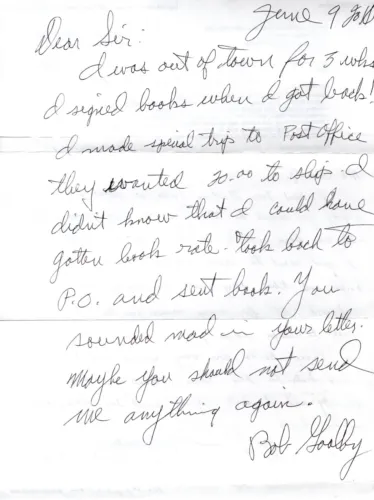 June 9
Dear Sir:
I was out of town for 3 wks
I signed books when I got back!
I made special trip to Post Office
they wanted 30.00 to ship. I
didn't know that I could have
gotten book rate. Took back to
P.O. and sent book. You
sounded mad in your letter.
Maybe you should not send
me anything again.
Bob Goalby